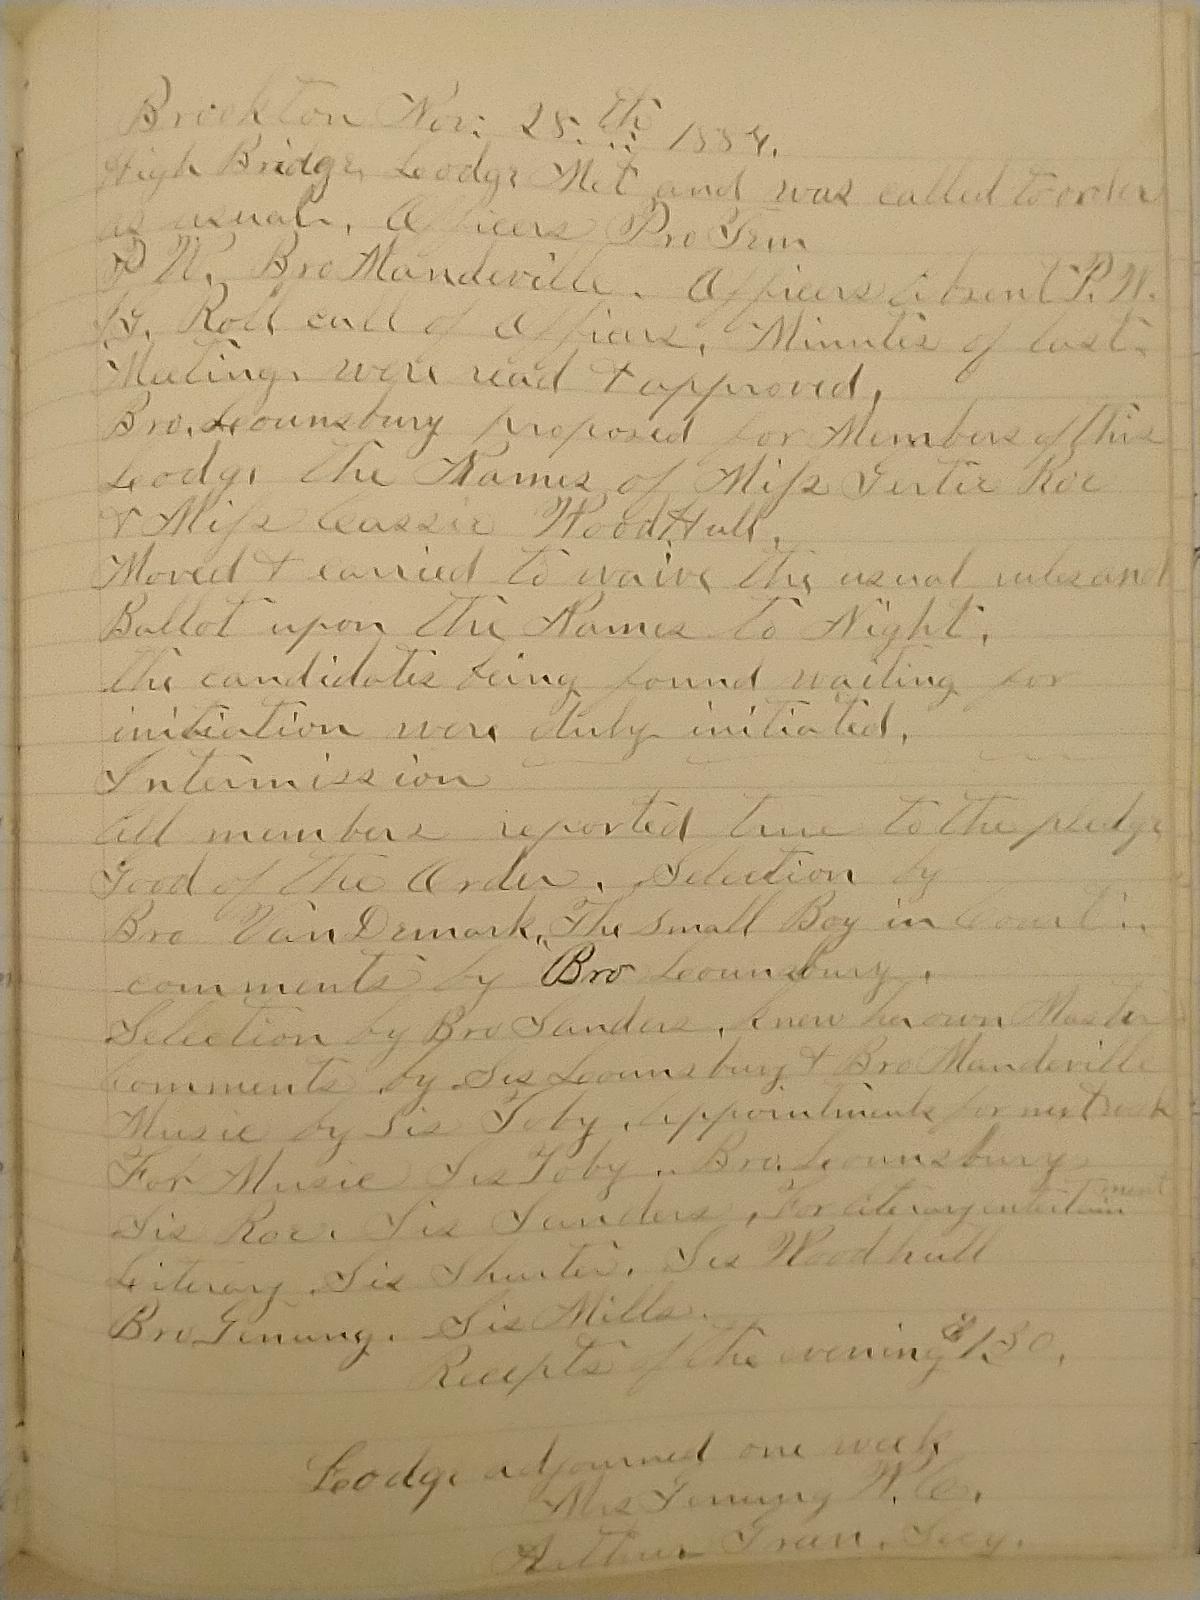 Brockton Nov: 28.th 1884.
High Bridge Lodge Met and was called to order
as usual, Officers Pro Tem
P W. Bro Mandeville. Officers Absent P. W.
G. Roll call of Officers, Minutes of last
Meeting were read & approved,
Bro. Lounsbury proposed for Members of this
Lodge the Names of Miss Gertie Roe
& Miss Cassie WoodHull,
Moved & carried to waive the usual rules and
Ballot upon the Names to Night,
the candidates being found waiting for
initiation were duly initiated,
Intermission
All members reported true to the pledge
Good of the Order. Selection by
Bro VanDemark, "The Small Boy in Court"
comments by Bro Lounsbury.
Selection by Bro Sanders, knew her own Master
Comments by Sis Lounsbury & Bro Mandeville
Music by Sis Toby, Appointments for next week
For Music Sis Toby. Bro. Lounsbury
Sis Roe. Sis Sanders, For literary entertainment
Literary. Sis Shuter. Sis Woodhull
Bro Genung. Sis Mills.
Recepts of the evening $1.30.
Lodge adjourned one week
Mrs Genung W. C.
Arthur Gran. Secy.